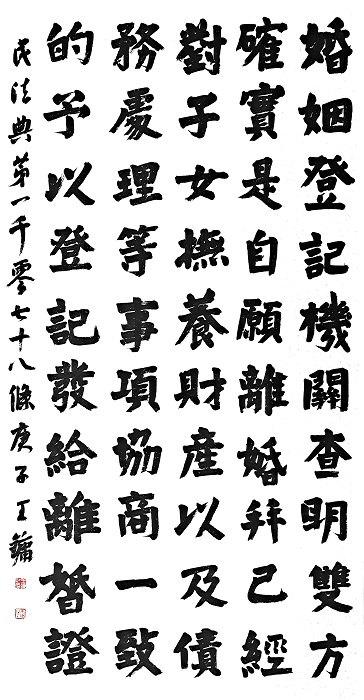 婚姻登記機關查明雙方
確實是自願離婚并已經
對子女撫養財産以及債
務處理等事項協商一致
的予以登記發給離婚證
民法典第一千零七十八條庚子王鏞